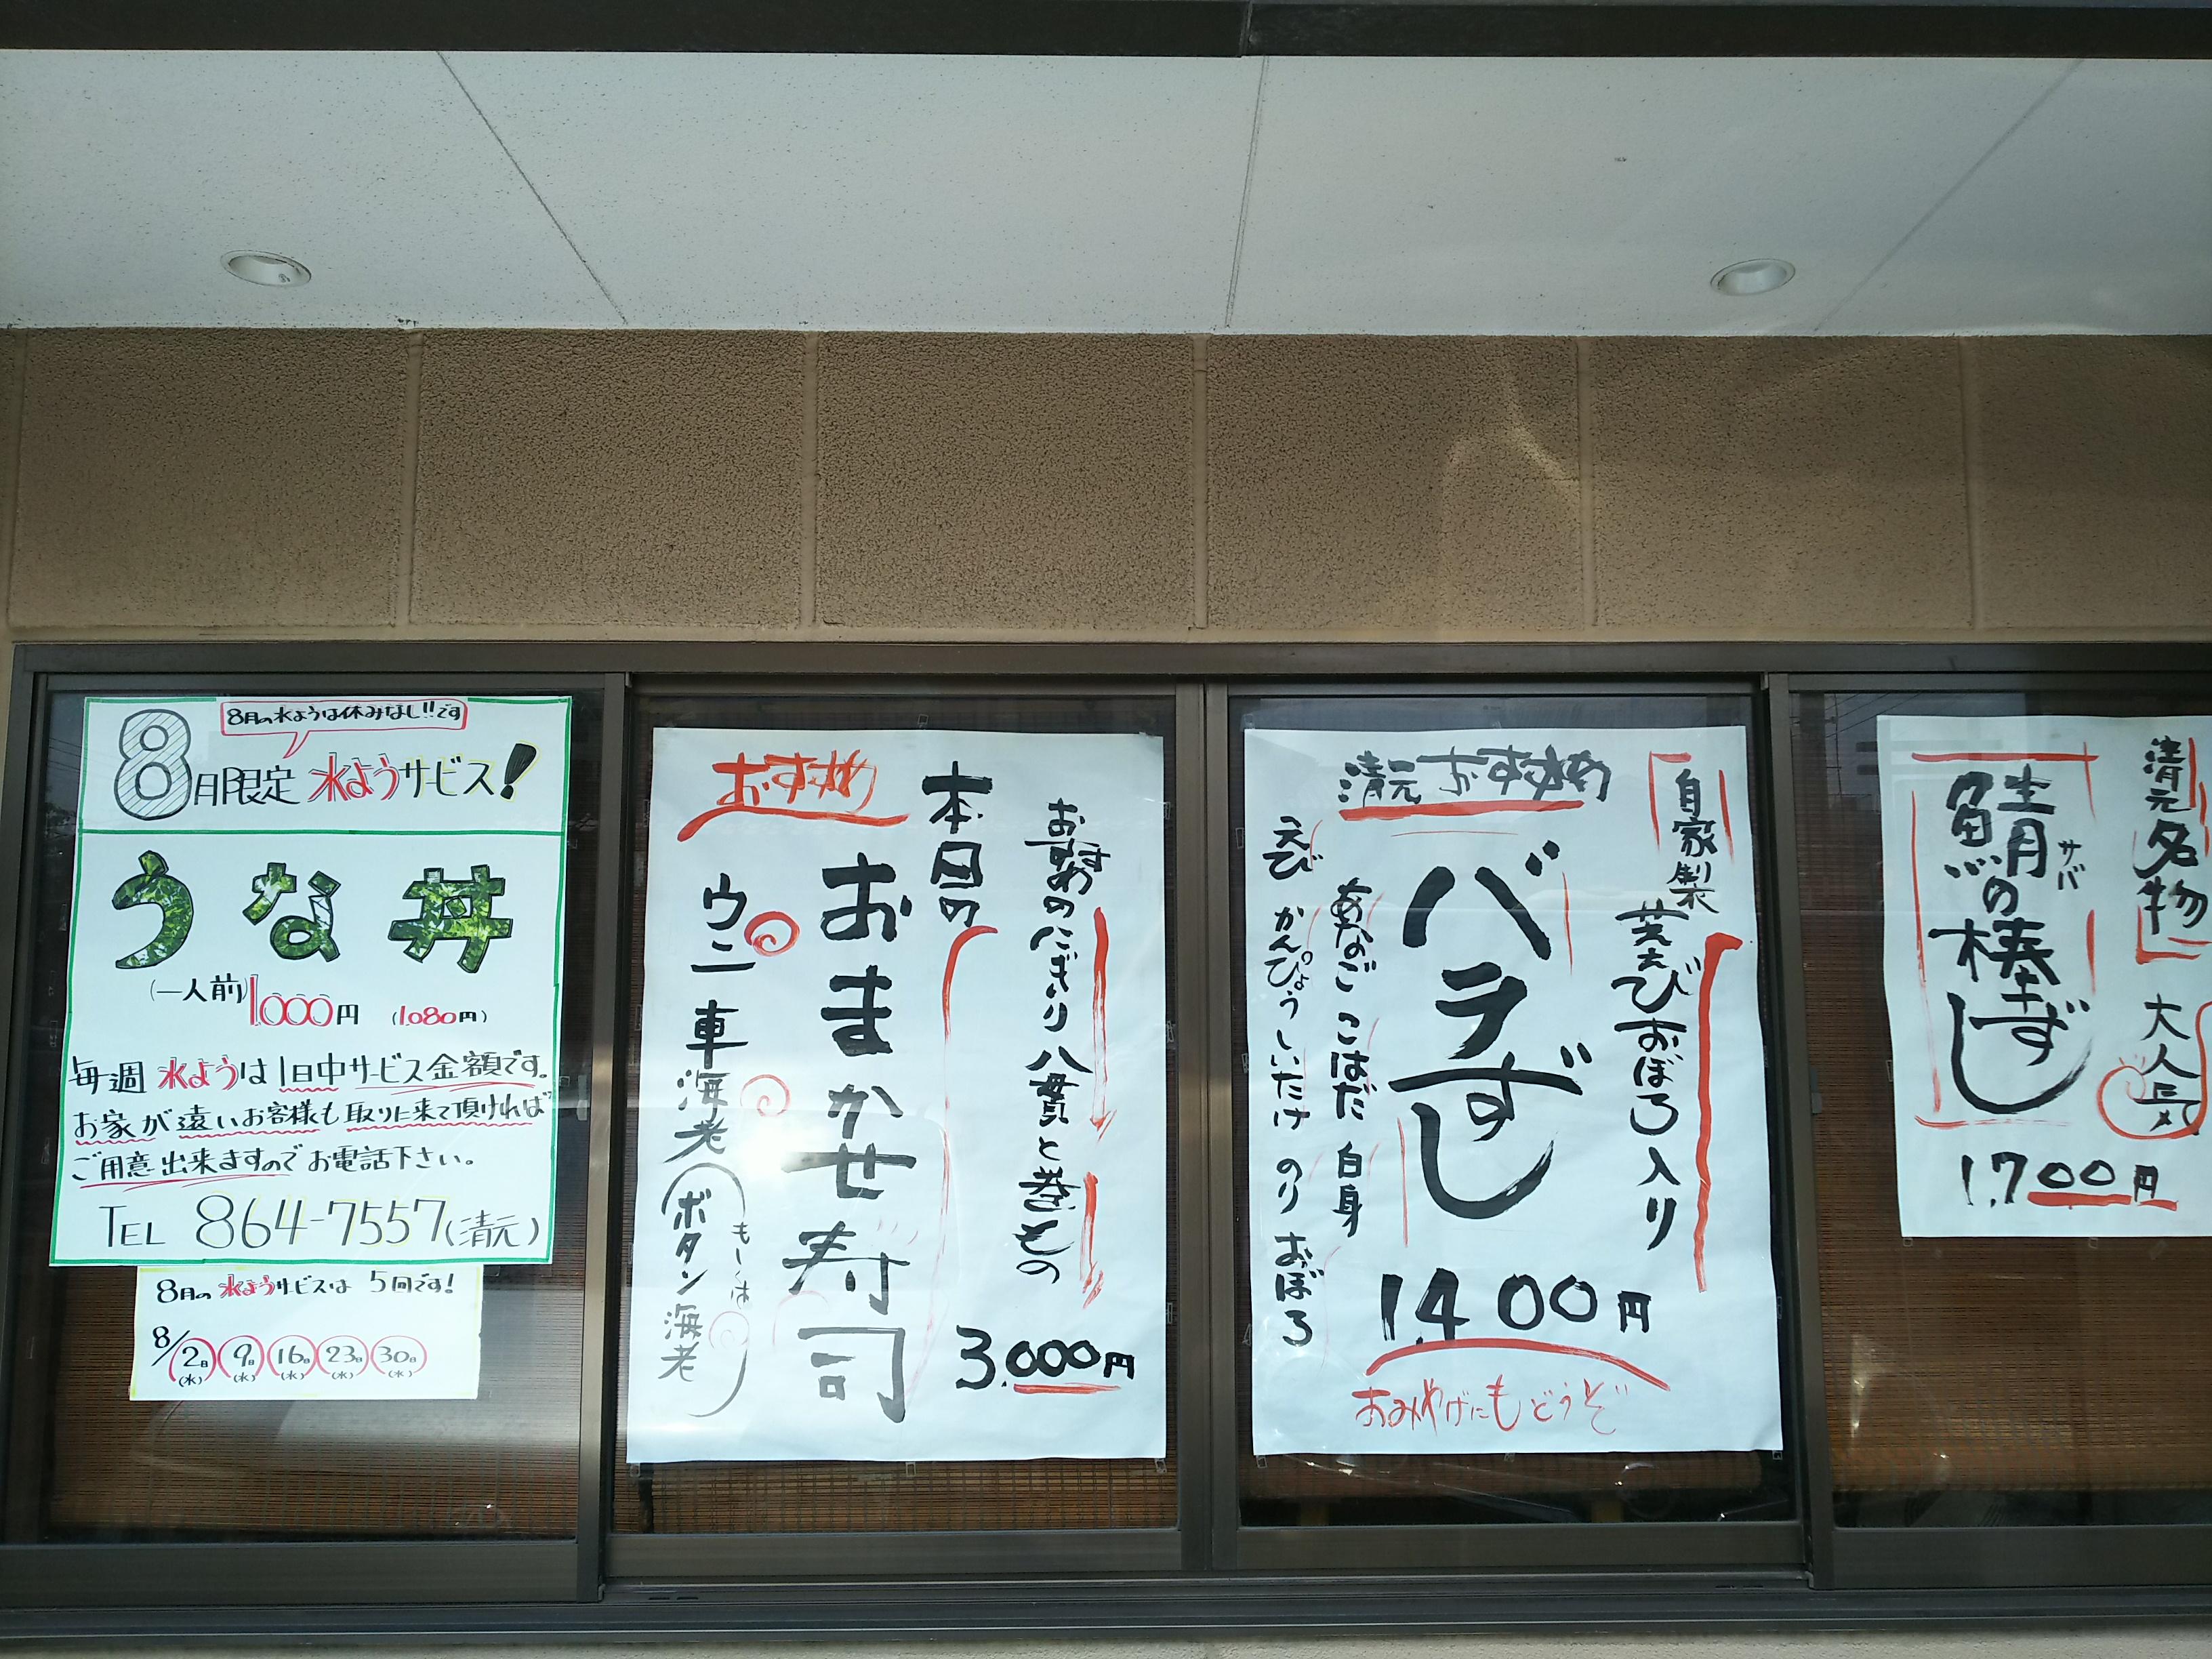 8月の水ようは休みなし!!です
8月限定 水ようサービス!
うな丼
(一人前) 1000円 (1.080円)
毎週 水ようは1日中サービス金額です。
お家が遠いお客様も取りに来て頂ければ
ご用意出来ますのでお電話下さい。
TEL 864-7557(清元)
8月の水ようサービスは 5回です!
8/2日 9日 16日 23日 30日
(水) (水) (水) (水) (水)
おすすめ
本日の
おまかせ寿司
おすすめのにぎり八貫と巻もの
3.000円
ウニ 車海老
もしくは
ボタン海老
清元おすすめ
自家製
芝えびおぼろ入り
バラずし
あなご こはだ 白身
えび かんぴょう しいたけ のり おぼろ
1.400円
おみやげにもどうぞ
清元名物 大人気
鯖の棒ずし
サバ
1.700円